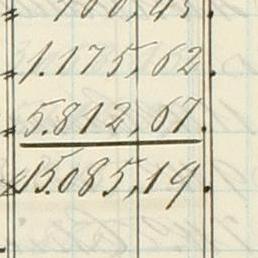 1.175,62.
5.812,67.
15.085,19.